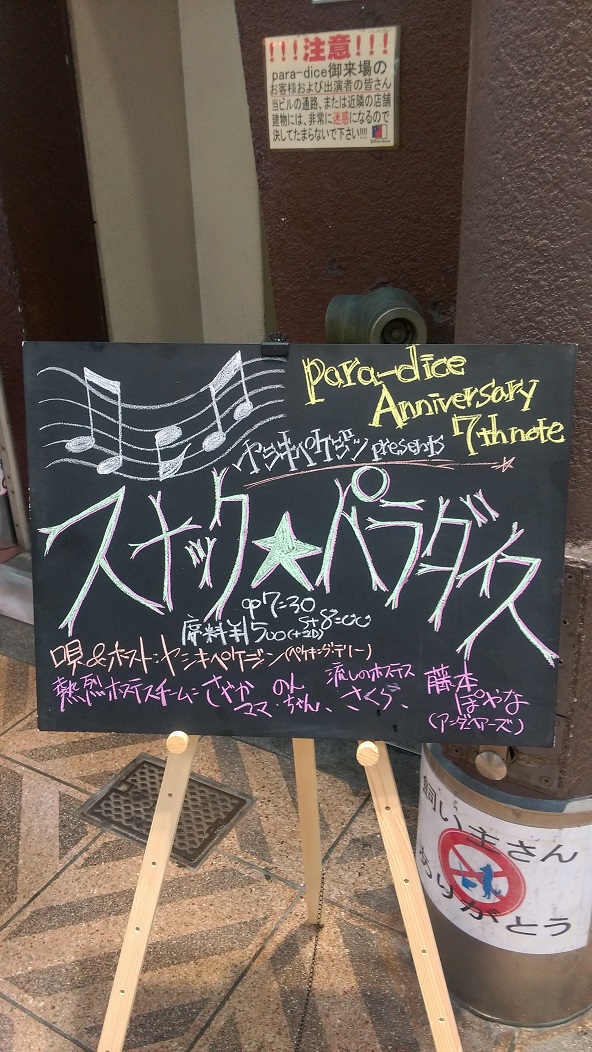 !!!注意!!!
para-dice御来場の
お客様および出演者の皆さん
当ビルの通路、または近隣の店舗
建物には、非常に迷惑になるので
決してたまらないで下さい!!!!
para-dice
Anniversary
7th note
ヤシキペケジン presents
スナック★パラダイス
op7:30
St8:00
席料¥1500(+2D)
唄&ホスト:ヤシキペケジン(ペケキングテリー)
熱烈ホステスチーム:さやかママ、のんちゃん、流しのホステスさくら、藤本ぽやな(アンダヘアーズ)
飼い主さん
ありがとう